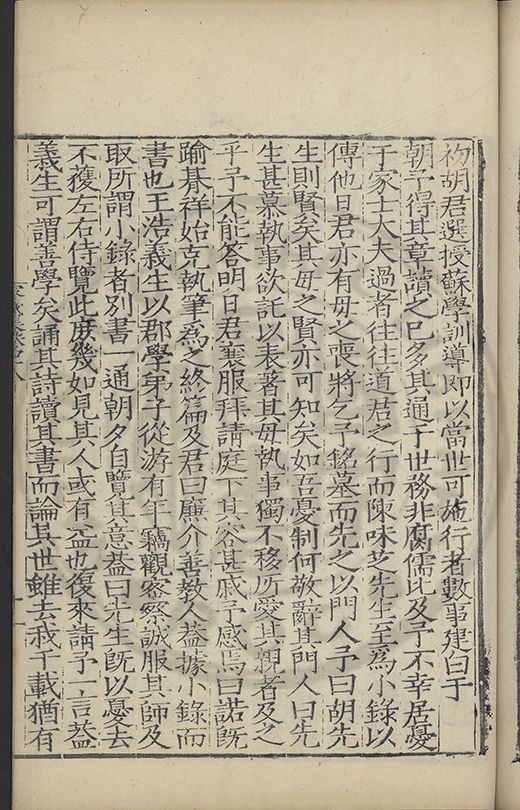 初胡君選授蘇學訓導即以當世可施行者數事建白于
朝予得其章讀之已多其通于世務非腐儒比及予不幸居憂
于家士大夫過者往往道君之行而陳味芝先生至為小錄以
傳他日君亦有母之喪將乞予銘墓而先之以門人予曰胡先
生則賢矣其母之賢亦可知矣如吾憂制何敬辭其門人曰先
生甚慕執事欲託以表著其母執事獨不移所愛其親者及之
乎予不能答明日君衰服拜請庭下其容甚戚予感焉曰諾既
踰朞祥始克執筆為之終篇及君曰廉介善教人蓋據小錄而
書也王浩義生以郡學弟子從游有年竊觀密察誠服其師及
取所謂小錄者別書一通朝夕自覽其意蓋曰先生既以憂去
不獲左右侍覽此庶幾如見其人或有益也復來請予一言益
義生可謂善學矣誦其詩讀其書而論其世雖去我千載猶有